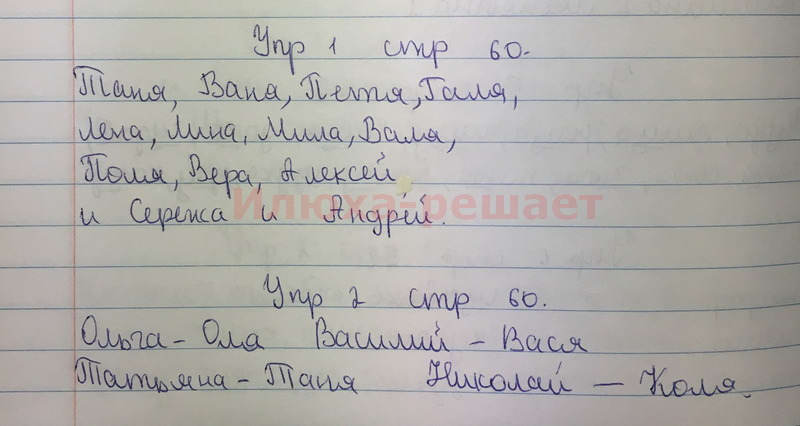 Упр 1 стр 60.
Таня, Вана, Петя, Галя,
Лена, Лина, Мила, Валя,
Поля, Вера, Алексей
и Сережа и Андрей.
Илюха-решает
Упр 2 стр 60.
Ольга - Ола Василий - Вася
Татьяна - Таня Николай - Коля.